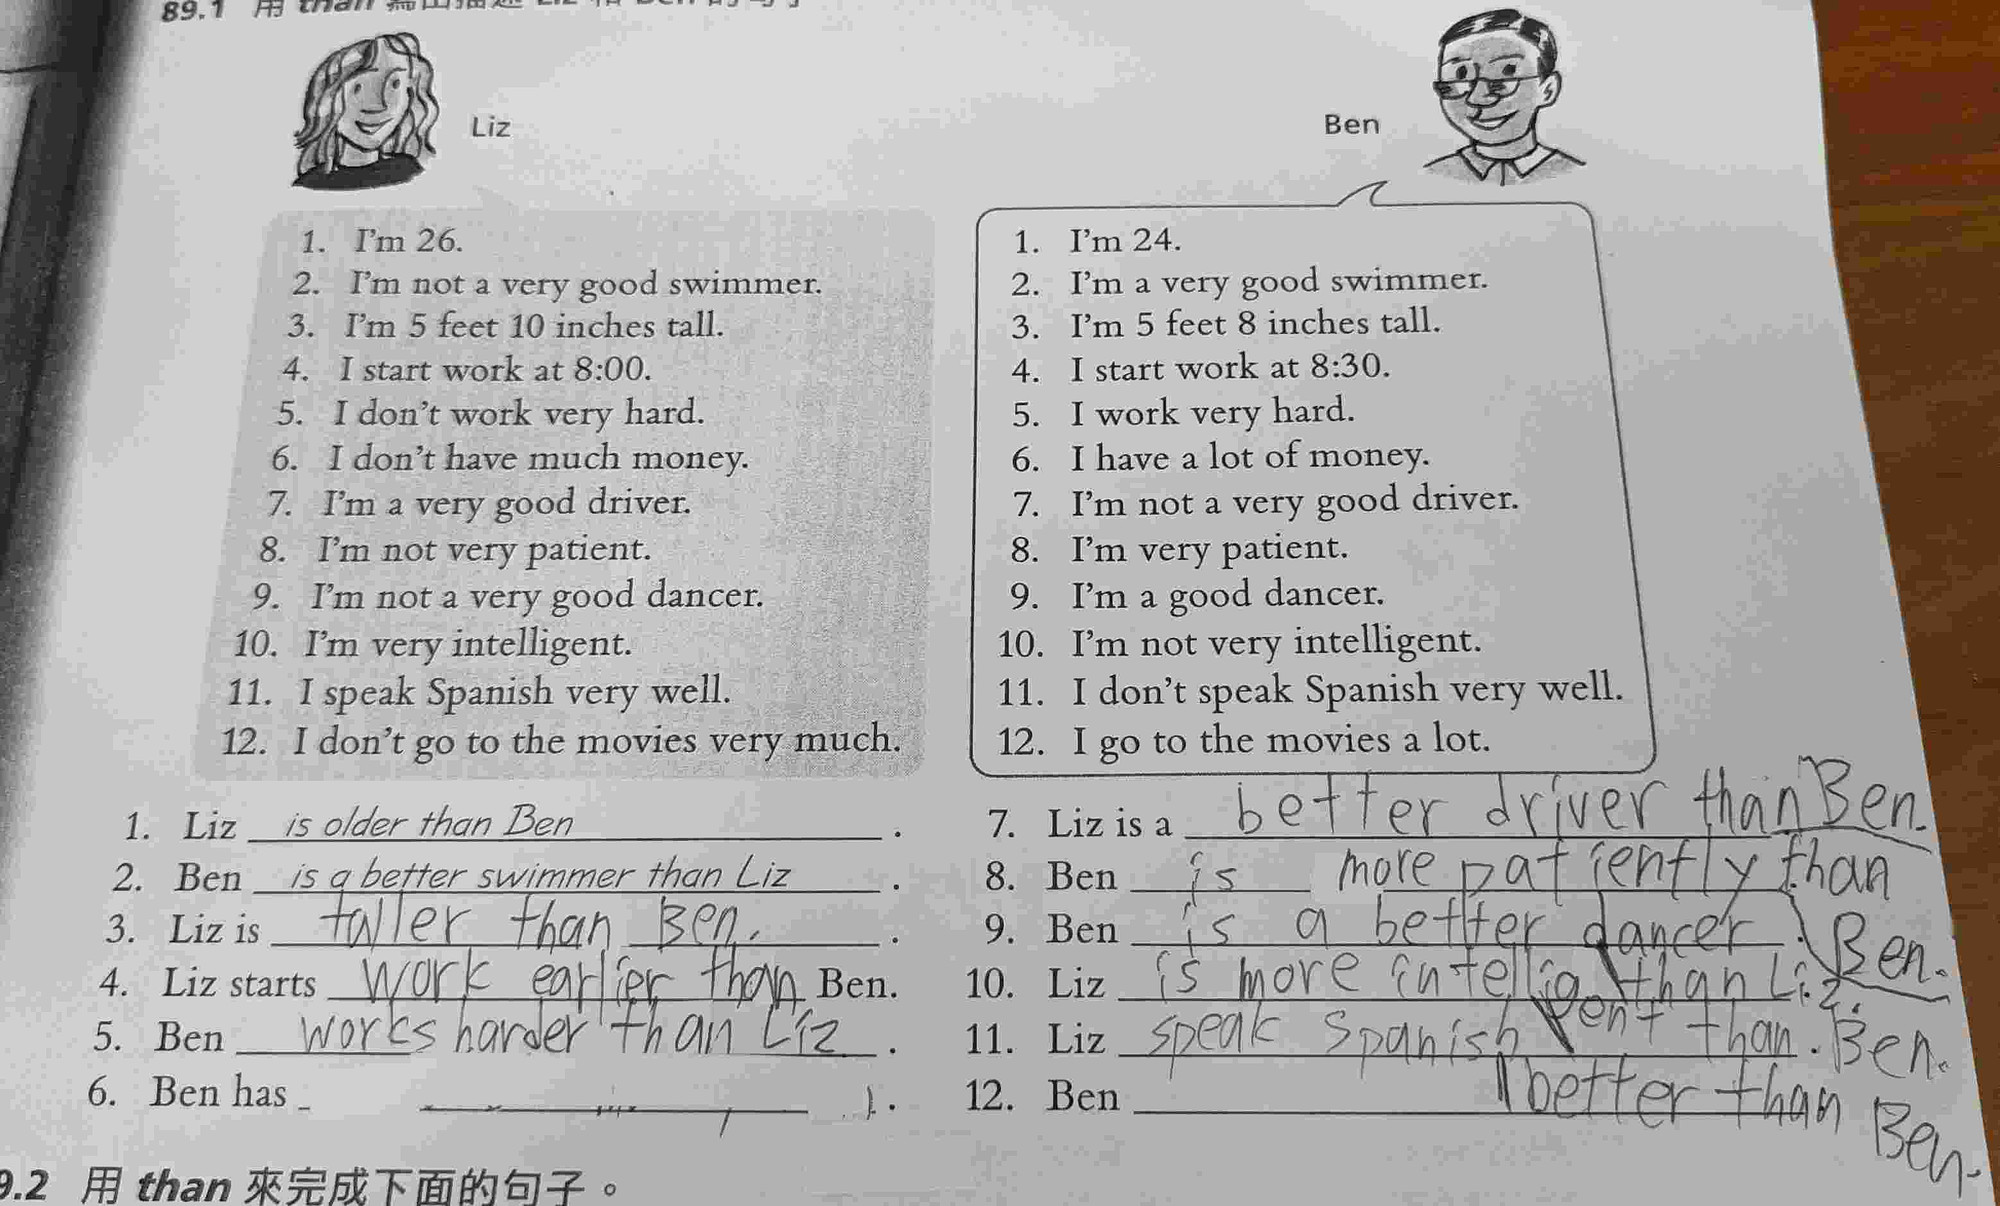 89.1 用 than 寫出描述 Liz 和 Ben 的句子
Liz
Ben
1. I'm 26.
2. I'm not a very good swimmer.
3. I'm 5 feet 10 inches tall.
4. I start work at 8:00.
5. I don't work very hard.
6. I don't have much money.
7. I'm a very good driver.
8. I'm not very patient.
9. I'm not a very good dancer.
10. I'm very intelligent.
11. I speak Spanish very well.
12. I don't go to the movies very much.
1. I'm 24.
2. I'm a very good swimmer.
3. I'm 5 feet 8 inches tall.
4. I start work at 8:30.
5. I work very hard.
6. I have a lot of money.
7. I'm not a very good driver.
8. I'm very patient.
9. I'm a good dancer.
10. I'm not very intelligent.
11. I don't speak Spanish very well.
12. I go to the movies a lot.
1. Liz is older than Ben .
2. Ben is a better swimmer than Liz .
3. Liz is taller than Ben. .
4. Liz starts work earlier than Ben.
5. Ben works harder than Liz .
6. Ben has .
7. Liz is a better driver than Ben.
8. Ben is more patiently than
Ben.
9. Ben is a better dancer .
than Liz.
10. Liz is more intelligent than . Ben.
11. Liz speak Spanish
better than Ben.
12. Ben
9.2 用 than 來完成下面的句子。